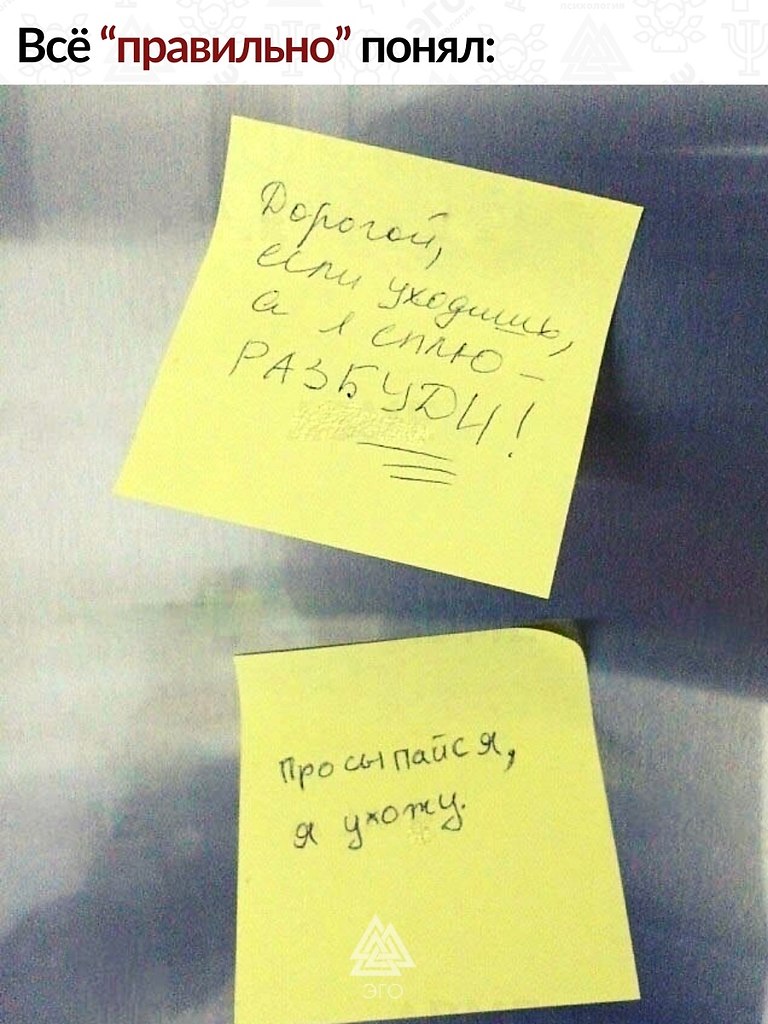 Всё “правильно” понял:
Дорогой,
если уходишь,
а я сплю –
РАЗБУДИ!
Просыпайся,
я ухожу.
ЭГО